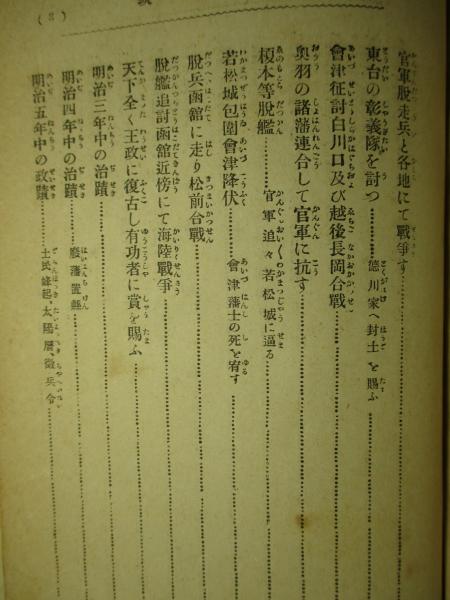 官軍脱走兵と各地にて戰爭す
東台の彰義隊を討つ 德川家へ封土を賜ふ
會津征討白川口及び越後長岡合戰
奥羽の諸藩連合して官軍に抗す
榎本等脱艦 官軍追々若松城に逼る
若松城包圍會津降伏 會津藩士の死を宥す
脱兵函館に走り松前合戰
脱艦追討函館近傍にて海陸戰爭
天下全く王政に復古し有功者に賞を賜ふ
明治三年中の治蹟
明治四年中の治蹟 廢藩置縣
明治五年中の政蹟 土民蜂起、太陽曆、徵兵令